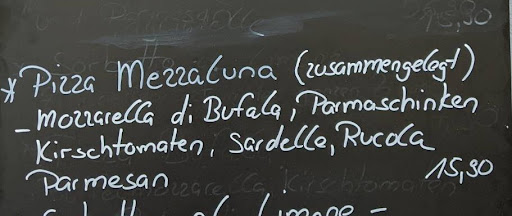 15,90
* Pizza Mezzaluna (zusammengelegt)
- Mozzarella di Bufala, Parmaschinken
Kirschtomaten, Sardelle, Rucola
Parmesan 15,90